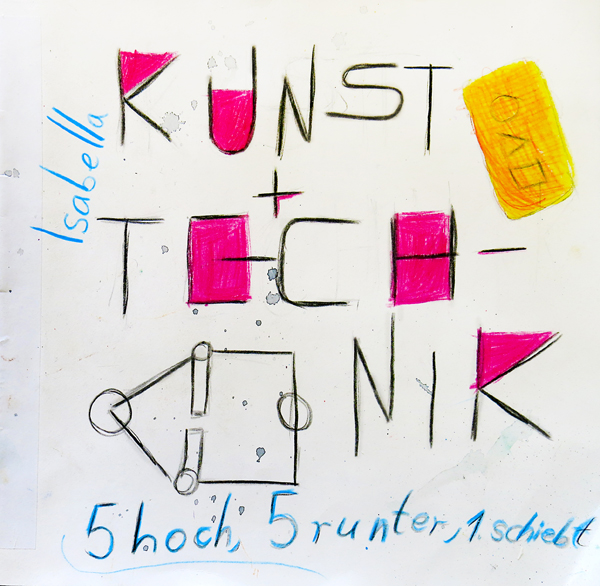 Isabella
KUNST
+
TECH-
NIK
5 hoch, 5 runter, 1 schiebt